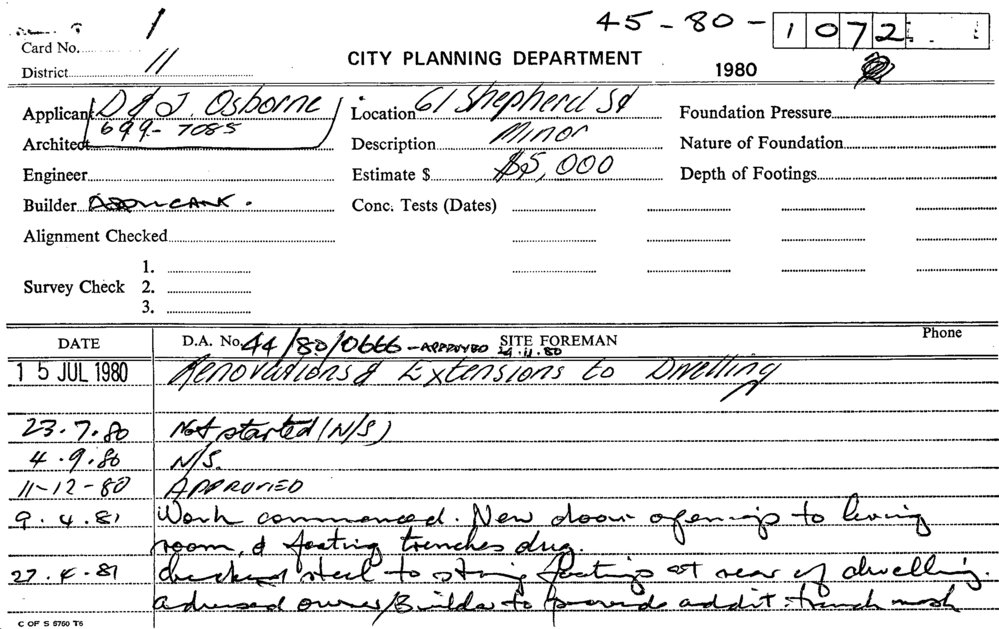 45-80-1072
Card No. 1
District 11
CITY PLANNING DEPARTMENT
1980
Applicant D & J. Osborne
699-7085
Location 61 Shepherd St
Foundation Pressure
Architect
Description Minor
Nature of Foundation
Engineer
Estimate $ $5,000
Depth of Footings
Builder APPLICANT.
Conc. Tests (Dates)
Alignment Checked
Survey Check
1.
2.
3.
DATE
D.A. No. 44/80/0666 - APPROVED 24.11.80
SITE FOREMAN
Phone
15 JUL 1980 Renovations & Extensions to Dwelling
23.7.80 Not started (N/S)
4.9.80 N/S.
11-12-80 APPROVED
9.4.81 Work commenced. New door openings to living
room, & footing trenches dug.
27.4.81 checked steel to strip footings at rear of dwelling.
advised owner/Builder to provide addit. trench mesh
C OF S 5760 T6